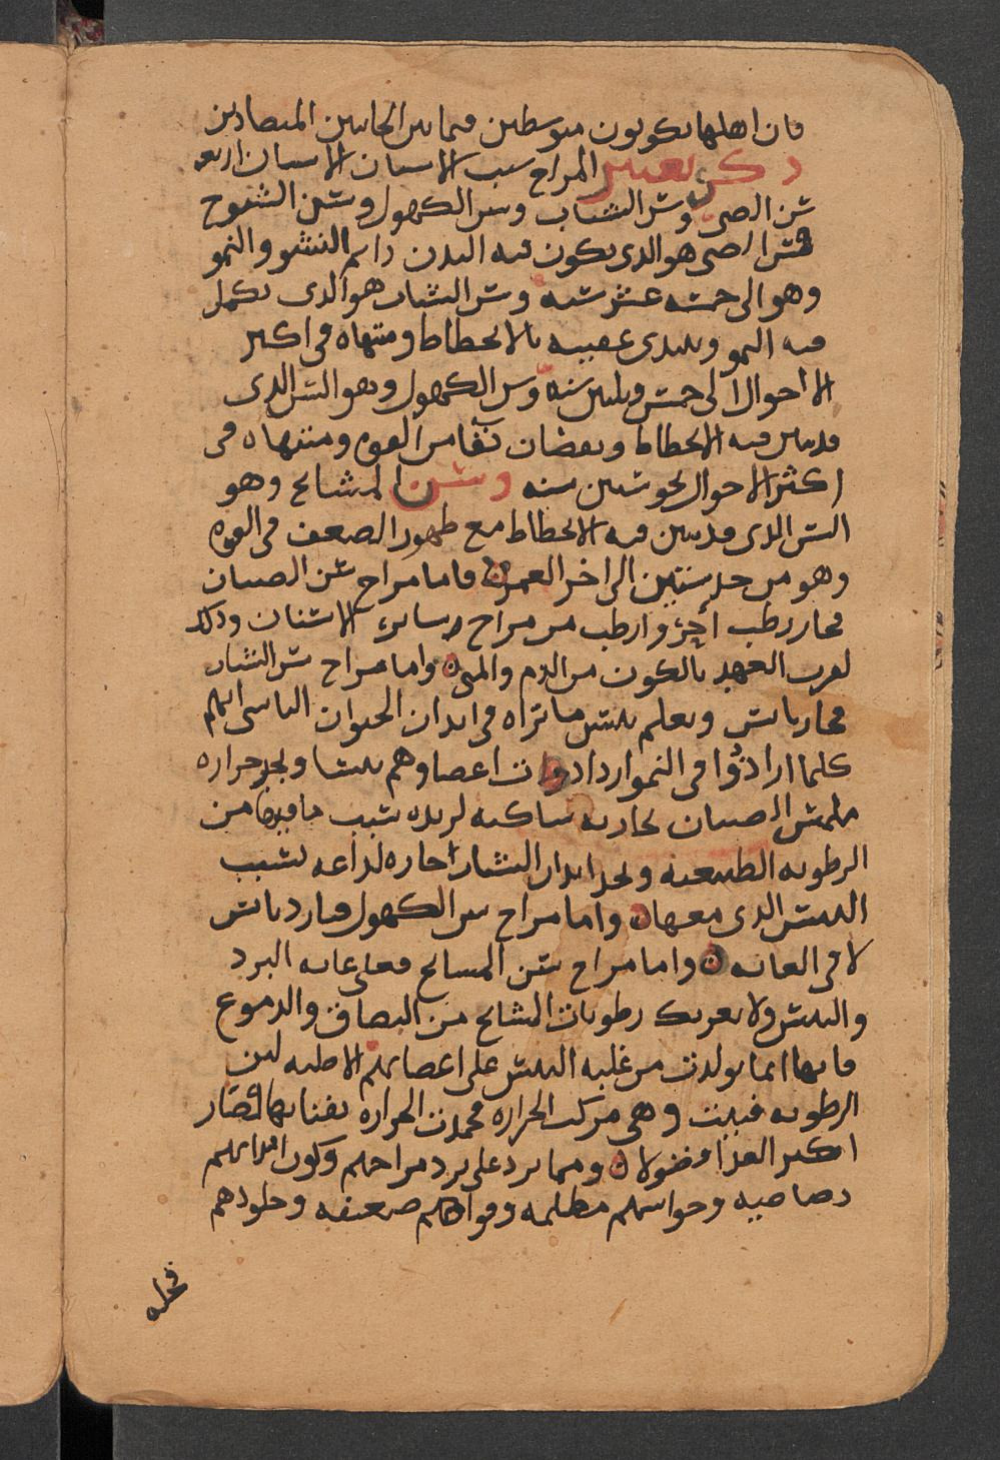 فان اهلها يكونون متوسطين فيما بين الحانبين المتصادين
ذكر تغيير المزاج بسبب الاسنان الاسنان اربعه
سن الصبى وسن الشباب وسن الكهول وسن الشيوخ
فسن الصبى هو الذى يكون فيه البدن دايم النشو والنمو
وهو الى خمسه عشر سنه وسن الشباب هو الذى يكمل
فيه النمو ويبتدى عقيبه بالانحطاط ومنتهاه فى اكثر
الاحوال الى خمس وثلثين سنه وسن الكهول وهو السن الذى
قد تبين فيه الانحطاط ونقصان بقا من القوه ومنتهاه فى
اكثر الاحوال نحو ستين سنه وسن المشايخ وهو
السن الذى قد تبين فيه الانحطاط مع ظهور الضعف فى القوه
وهو من حد ستين الى اخر العمر فاما مزاج سن الصبيان
فحار رطب احر وارطب من مزاج ساير الاسنان وذلك
لقرب العهد بالكون من الدم والمنى واما مزاج سن الشباب
فحار يابس ويعلم يبس ما تراه فى ابدان الحيوان الناشى انهم
كلما ازدادوا فى النمو ازدادوات اعضاوهم يبسا ونجد حراره
ملمس الصبيان بحاريه ساكنه لذيذه بسبب ما فيها من
الرطوبه الطبيعيه ونجد ابدان الشباب حاره لذاعه بسبب
اليبس الذى معها واما مزاج سن الكهول فبارد يابس
لا فى الغايه واما مزاج سن المشايخ فعلى غايه البرد
واليبس ولا يغريك رطوبات المشايخ من البصاق والدموع
فانها انما تولدت من غلبه اليبس على اعضايهم الاصليه لين
الرطوبه فنيت وهى مركب الحراره فخمدت الحراره بفنايها فصار
اكثر الغذا فضولا ومما يرد على برد مزاجهم وكون ابدانهم
رصاصيه وحواسهم مظلمه وقواهم ضعيفه وجلودهم
قحله